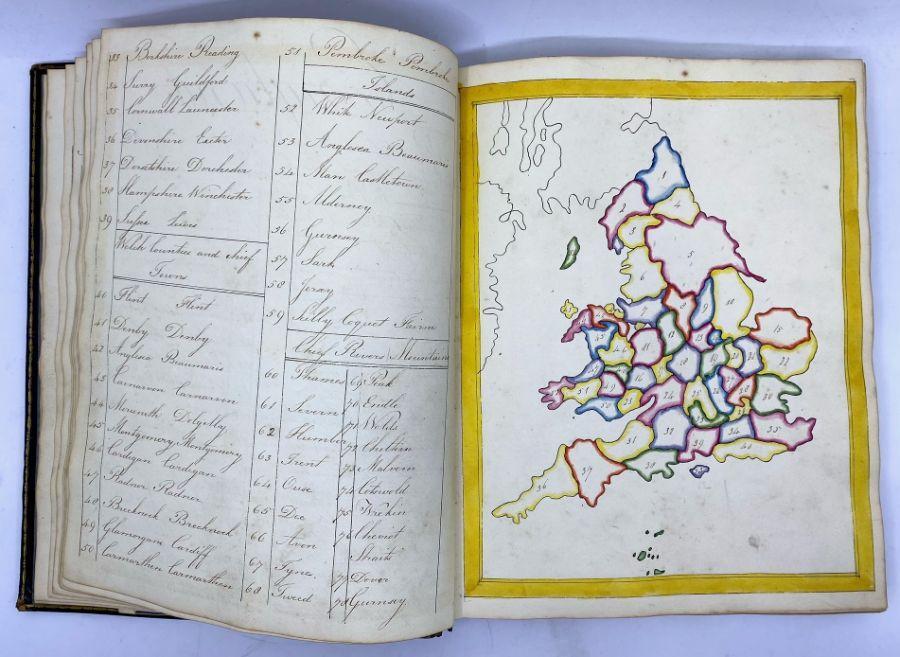 33 Berkshire Reading
34 Surry Guildford
35 Cornwall Launcester
36 Devonshire Exeter
37 Dorsetshire Dorchester
38 Hampshire Winchester
39 Sussex Lewes
Welch Counties and chief
Towns
40 Flint Flint
41 Denby Denby
42 Anglesea Beaumaris
43 Carnarvon Carnarvon
44 Merionith Dolgelly
45 Montgomery Montgomery
46 Cardigan Cardigan
47 Radnor Radnor
48 Brecknock Brecknock
49 Glamorgan Cardiff
50 Carmarthen Carmarthen
51 Pembroke Pembroke
Islands
52 White Newport
53 Anglesea Beaumaris
54 Man Castletown
55 Alderney
56 Gurnsey
57 Sark
58 Jersy
59 Scilly Coquet Fairn
Chief Rivers Mountains
60 Thames 69 Peak
61 Severn 70 Endle
62 Humber 71 Wolds
63 Trent 72 Chiltern
64 Ouse 73 Malvern
65 Dee 74 Cotswold
66 Avon 75 Wrekin
67 Tyne 76 Cheviot
68 Tweed
Straits
77 Dover
78 Gurnsey
1
2
4
3
5
6
7
8
9
10
15
22
36
37
31
38
39
34
35
40